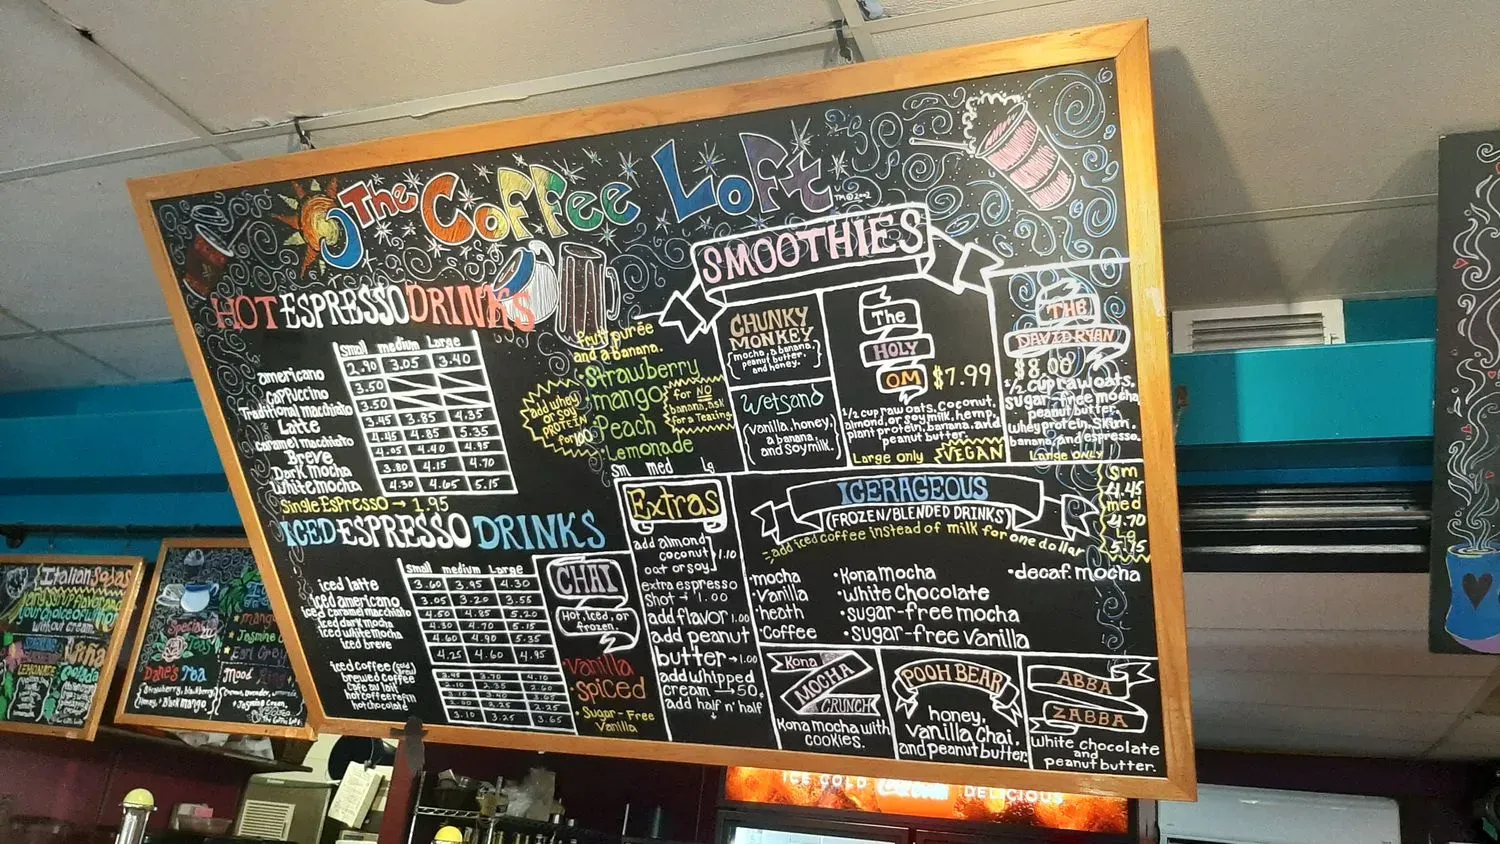 The Coffee Loft
TM © 2002
HOT ESPRESSO DRINKS
small medium Large
americano 2.90 3.05 3.40
cappuccino 3.50
Traditional macchiato 3.50
Latte 3.45 3.85 4.35
caramel macchiato 4.45 4.85 5.35
Breve 4.05 4.40 4.95
Dark mocha 3.80 4.15 4.70
white mocha 4.30 4.65 5.15
Single Espresso → 1.95
ICED ESPRESSO DRINKS
small medium Large
iced latte 3.60 3.95 4.30
iced americano 3.05 3.20 3.55
iced caramel macchiato 4.50 4.85 5.20
iced dark mocha 4.30 4.70 5.15
iced white mocha 4.60 4.90 5.35
iced breve 4.25 4.60 4.95
iced coffee
brewed coffee
Cafe au lait
hot coffee refill
hot chocolate 3.10 3.25 3.65
CHAI
Hot, iced, or
frozen.
•Vanilla
•Spiced
•Sugar-Free
Vanilla
SMOOTHIES
fruit purée
and a banana.
•Strawberry
mango
•Peach
•Lemonade
add whey
or soy
PROTEIN
for 1.00
for NO
banana, ask
for a Teazing
sm med Lg
CHUNKY
MONKEY
mocha, a banana,
peanut butter,
and honey.
Wetsand
vanilla, honey,
a banana,
and soy milk.
The
HOLY
OM $7.99
1/2 cup raw oats, coconut,
almond, or soy milk, hemp,
plant protein, banana, and
peanut butter.
Large only VEGAN
THE
DAVID RYAN
$8.00
1/2 cup raw oats,
sugar-free mocha,
peanut butter,
whey protein, skim,
banana, and espresso.
Large ONLY
Extras
add almond
coconut
oat or soy 1.10
extra espresso
shot → 1.00
add flavor 1.00
add peanut
butter → 1.00
add whipped
cream → 50¢
add half n' half
ICERAGEOUS
(FROZEN/BLENDED DRINKS)
= add iced coffee instead of milk for one dollar
Sm
4.45
med
4.70
Lg
5.15
•mocha
•Vanilla
•heath
•Coffee
•Kona mocha
•White Chocolate
•sugar-free mocha
•sugar-free vanilla
•decaf. mocha
Kona
MOCHA
CRUNCH
Kona mocha with
cookies.
POOH BEAR
honey,
vanilla chai,
and peanut butter.
ABBA
ZABBA
white chocolate
and
peanut butter.
Italian sodas
your choice of
without cream.
LEMONADE
Colada
Specials
Teas
Dane's Tea
Strawberry, blackberry,
Honey, + Black mango.
Mood
mango
Jasmine
Earl Grey
+ Jasmine Green.
ICE COLD Coca-Cola DELICIOUS